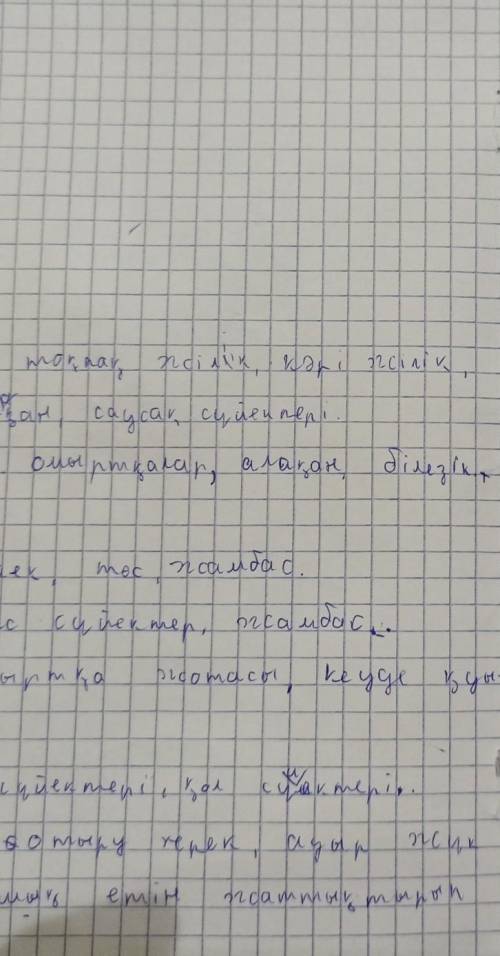 тоқпақ жілік, кәрі жілік,
саусақ сүйектері.
омыртқалар, алақан, білезік,
төс, жамбас.
сүйектер, жамбас.
ыртқа жотасы, кеуде қуы-
сүйектері, қол сүйектері.
отыру керек, ауыр жүк
етін жаттықтырып